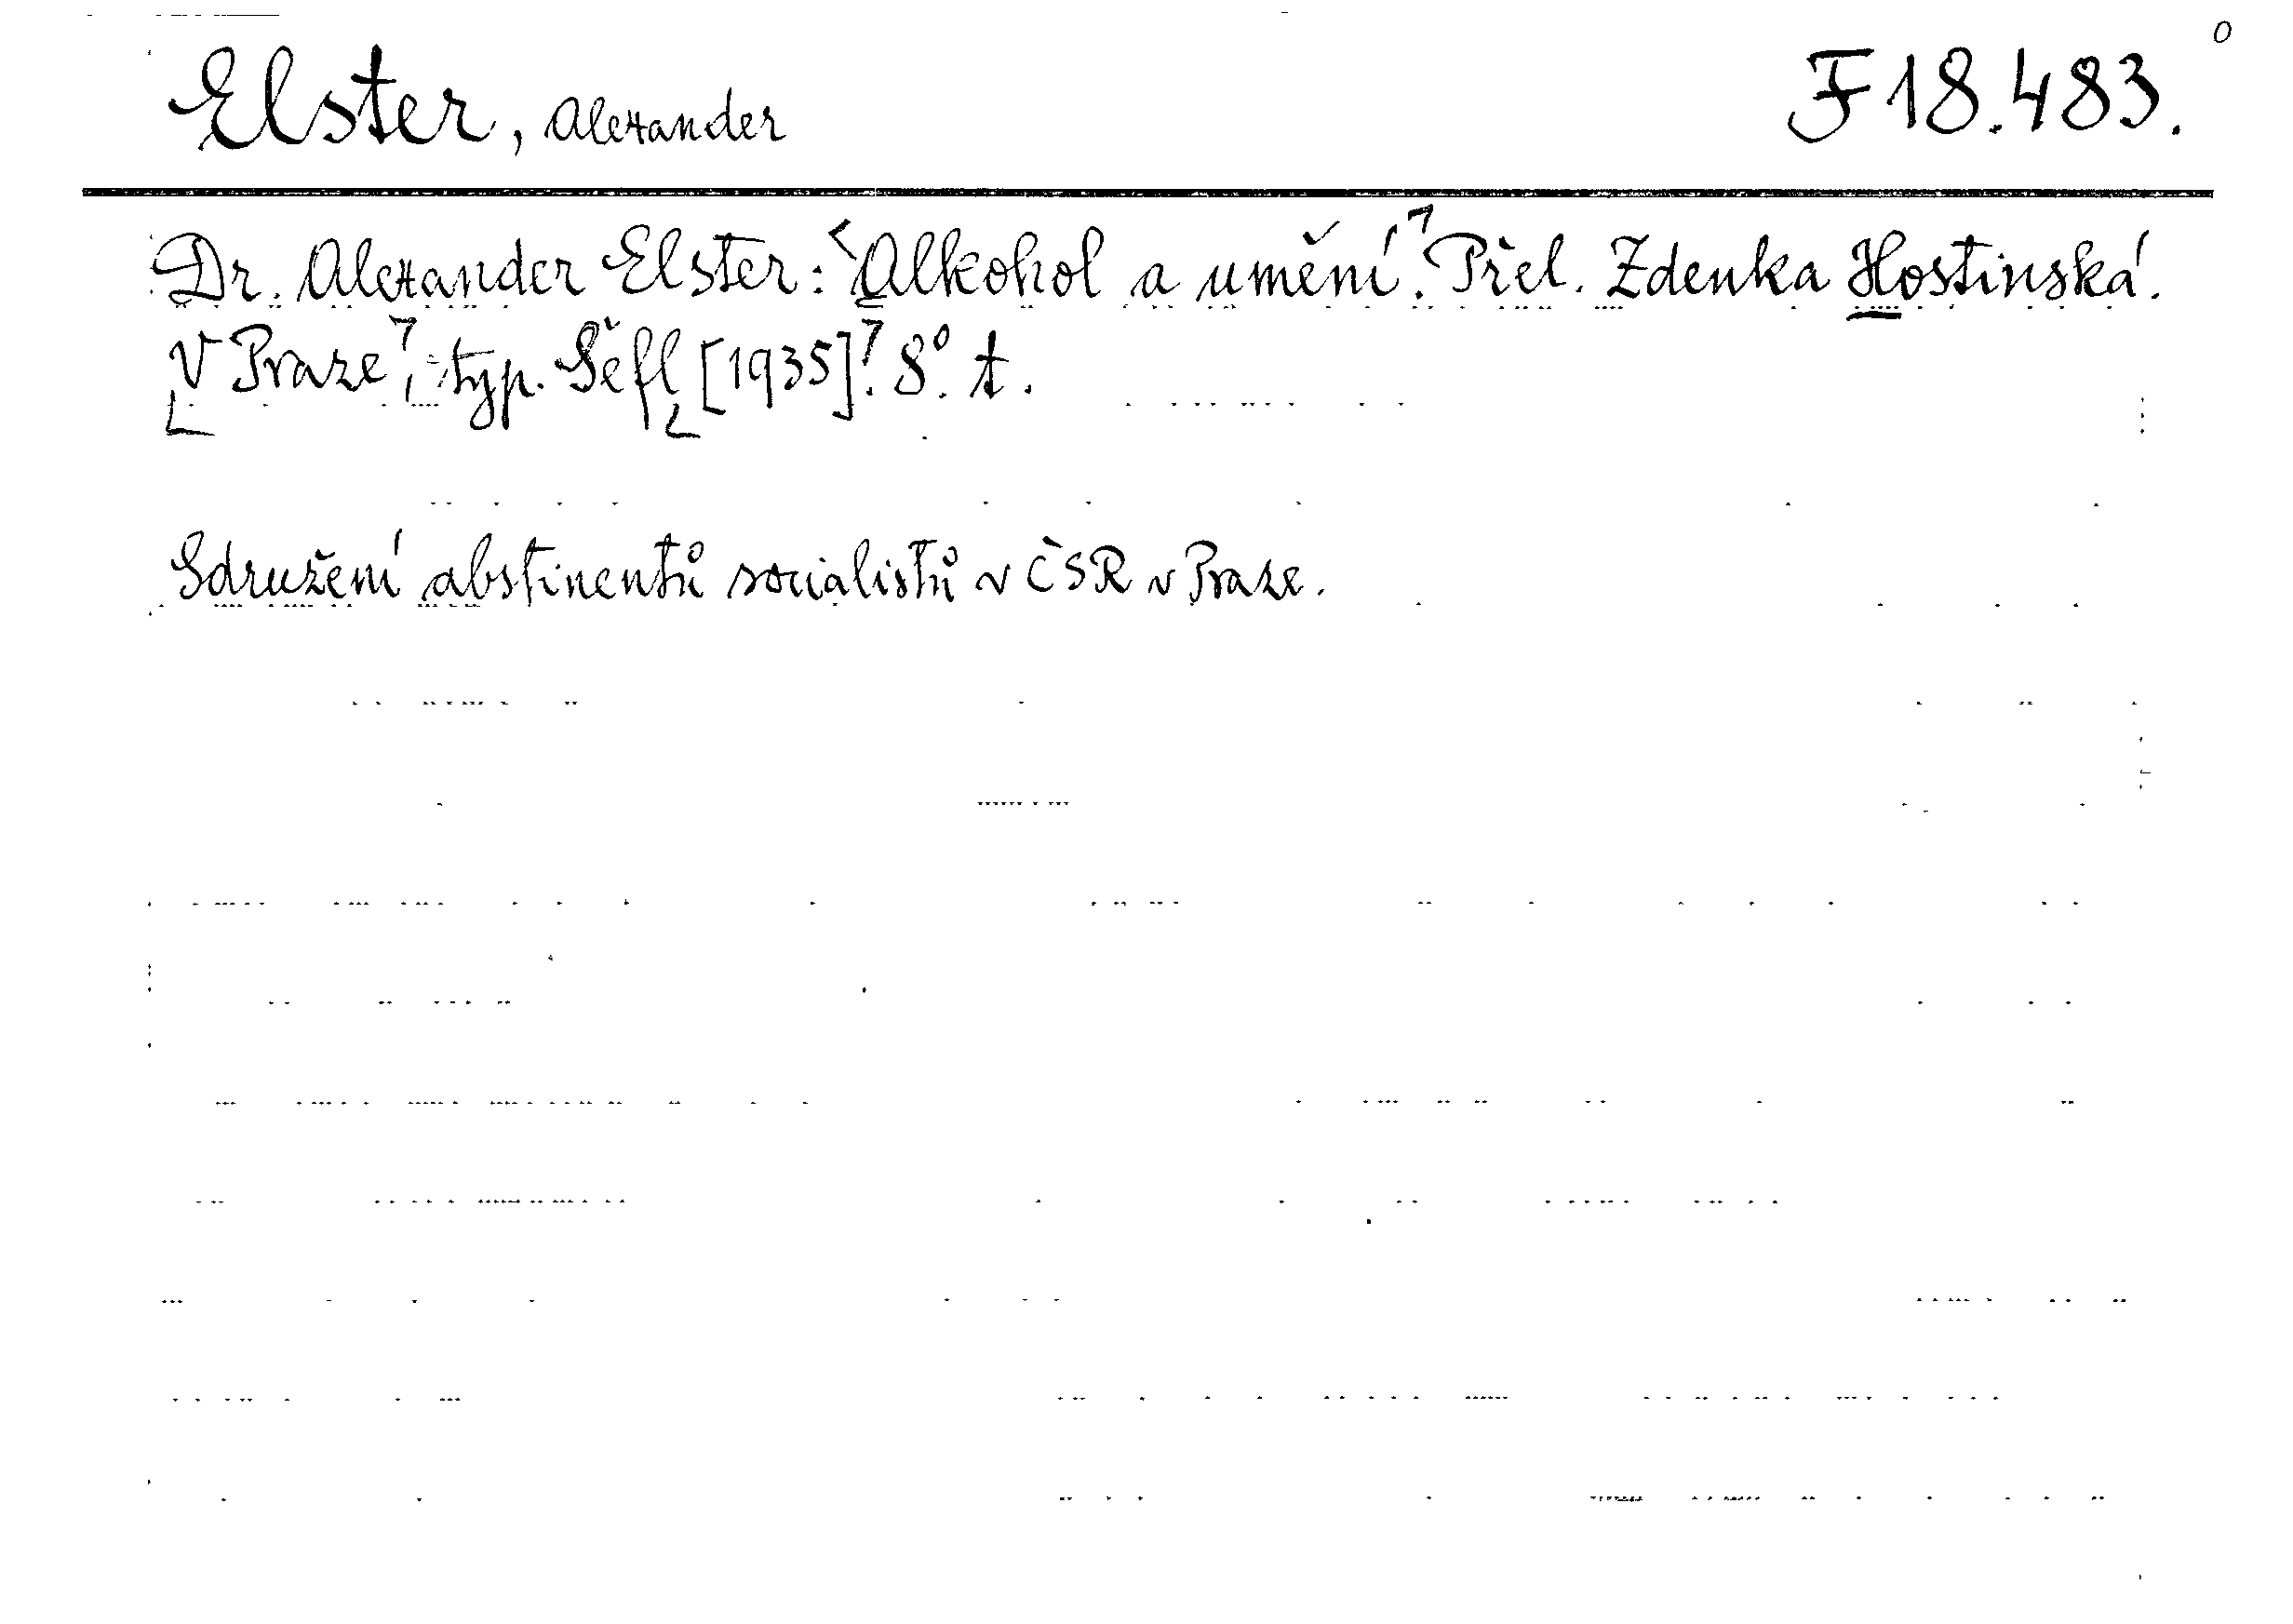 Elster, Alexander F 18.483. 0
Dr. Alexander Elster: Alkohol a umění. Přel. Zdenka Hostinská.
V Praze, typ. Šéfl [1935]. 8° t.
Sdružení abstinentů socialistů v ČSR v Praze.